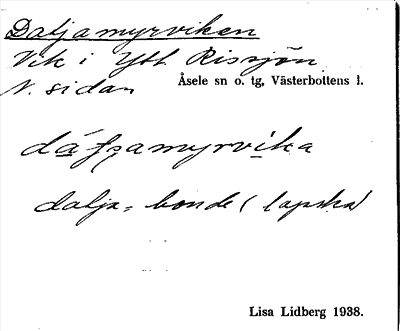 Daljamyrviken
Vik i Ytt Rissjön
N. sidan
Åsele sn o. tg, Västerbottens l.
dalja = bonde (lapska)
Lisa Lidberg 1938.